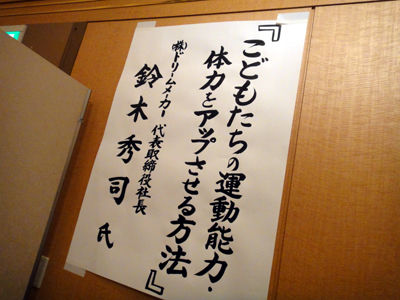 『こどもたちの運動能力・
体力をアップさせる方法』
㈱ドリームメーカー 代表取締役社長
鈴木秀司 氏